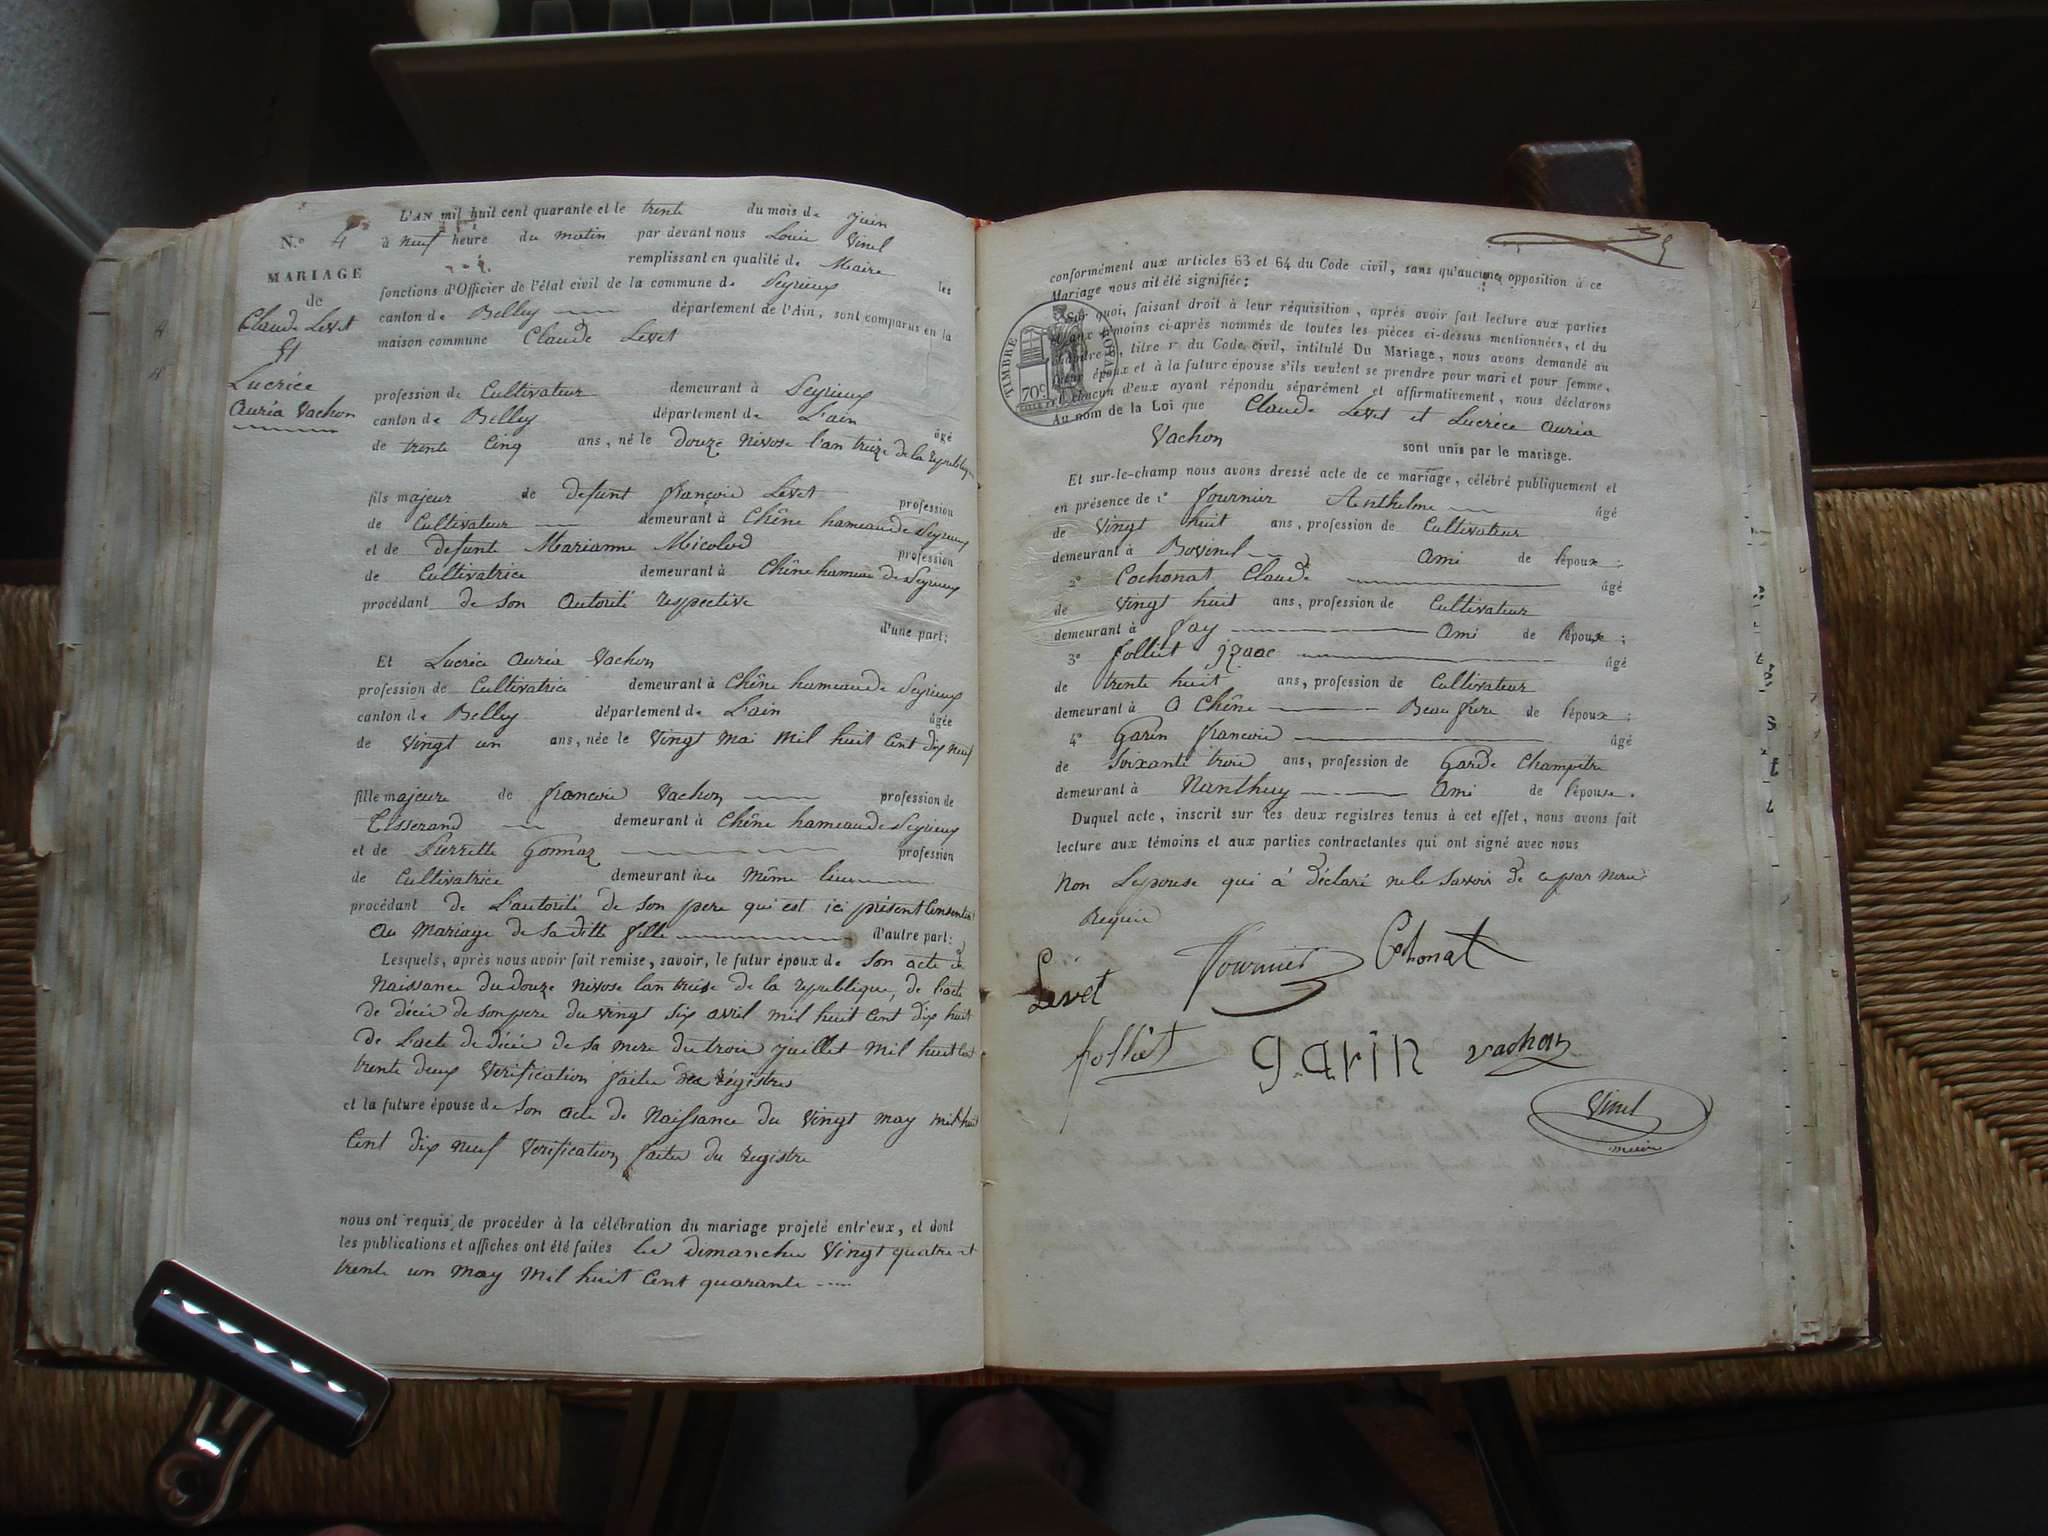 L'AN mil huit cent quarante et le trente du mois de juin
N.º 4 à neuf heure du matin par devant nous Louis Vinel
remplissant en qualité de Maire les
MARIAGE
de
Claude Levet
Et
Lucrèce
Auria Vachon
fonctions d'Officier de l'état civil de la commune de Peyrieux
canton de Belley département de l'Ain, sont comparus en la
maison commune Claude Levet
profession de Cultivateur demeurant à Peyrieux
canton de Belley département de L'ain âgé
de trente Cinq ans, né le douze nivose l'an treize de la republique
fils majeur de defunt françois Levet profession
de Cultivateur demeurant à Chêne hameau de Peyrieux
et de defunte Marianne Micolod profession
de Cultivatrice demeurant à Chêne hameau de Peyrieux
procédant de Son Autorité respective
d'une part;
Et Lucrèce Auria Vachon
profession de Cultivatrice demeurant à Chêne hameau de Peyrieux
canton de Belley département de L'ain âgée
de vingt un ans, née le vingt mai mil huit Cent dix neuf
fille majeure de françois Vachon profession de
Tisserand demeurant à Chêne hameau de Peyrieux
et de Pierrette profession
de Cultivatrice demeurant au même lieu
procédant de L'autorité de son pere qui est ici présent Consentant
au Mariage de Sa ditte fille d'autre part;
Lesquels, après nous avoir fait remise, savoir, le futur époux de Son acte de
Naissance du douze nivose l'an treise de la republique, de l'acte
de décès de son pere du vingt six avril mil huit Cent dix huit
de L'acte de décès de sa mere du trois juillet mil huit Cent
trente deux Verification faite des Régistres
et la future épouse de Son acte de Naissance du vingt may mil huit
Cent dix neuf Verification faite du registre
nous ont requis de procéder à la célébration du mariage projeté entr'eux, et dont
les publications et affiches ont été faites les dimanches vingt quatre et
trente un may mil huit Cent quarante
conformément aux articles 63 et 64 du Code civil, sans qu'aucune opposition à ce
Mariage nous ait été signifiée;
Sur quoi, faisant droit à leur réquisition, après avoir fait lecture aux parties
et aux témoins ci-après nommés de toutes les pièces ci-dessus mentionnées, et du
chapitre 6, titre 5 du Code civil, intitulé Du Mariage, nous avons demandé au
futur époux et à la future épouse s'ils veulent se prendre pour mari et pour femme.
chacun d'eux ayant répondu séparément et affirmativement, nous déclarons
TIMBRE ROYAL
70 c
Au nom de la Loi que Claude Levet et Lucrèce Auria
Vachon sont unis par le mariage.
Et sur-le-champ nous avons dressé acte de ce mariage, célébré publiquement et
en présence de 1º Fournier Anthelme âgé
de vingt huit ans, profession de Cultivateur
demeurant à Bovinel Ami de l'époux;
2º Cochonat Claude âgé
de vingt huit ans, profession de Cultivateur
demeurant à Fay Ami de l'époux;
3º Folliet Izaac âgé
de trente huit ans, profession de Cultivateur
demeurant à O Chêne Beau frère de l'époux;
4º Garin francois âgé
de Soixante trois ans, profession de Garde Champêtre
demeurant à Nanthuy Ami de l'épouse.
Duquel acte, inscrit sur les deux registres tenus à cet effet, nous avons fait
lecture aux témoins et aux parties contractantes qui ont signé avec nous
Non Lepouse qui a déclaré ne le Savoir de ce par nous
Requis
Levet Fournier Cohonat
folliet garin vachon
Vinel
maire